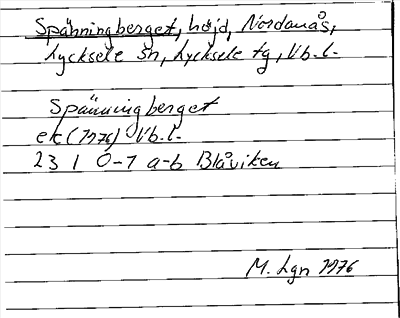 Spänningberget, höjd, Nordanås,
Lycksele sn, Lycksele tg, Vb.l.
Spänningberget
ek (1976) Vb.l.
23 I 0-1 a-b Blåviken
M. Lgn 1976